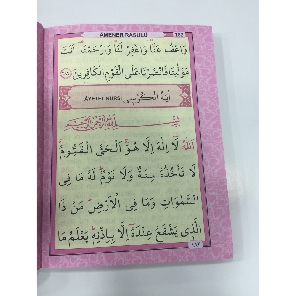 AMENER RASULÜ 182
وَاعْفُ عَنَّا وَاغْفِرْ لَنَا وَارْحَمْنَا اَنْتَ
مَوْلٰينَا فَانْصُرْنَا عَلَى الْقَوْمِ الْكَافِرِينَ
(AYETEL KÜRSİ) اٰيَةُ الْكُرْسِى
اَللّٰهُ لَا اِلٰهَ اِلَّا هُوَ اَلْحَىُّ الْقَيُّومُ
لَا تَأْخُذُهُ سِنَةٌ وَلَا نَوْمٌ لَهُ مَا فِى
السَّمٰوَاتِ وَمَا فِى الْاَرْضِ مَنْ ذَا
الَّذِى يَشْفَعُ عِنْدَهُ اِلَّا بِاِذْنِهِ يَعْلَمُ مَا